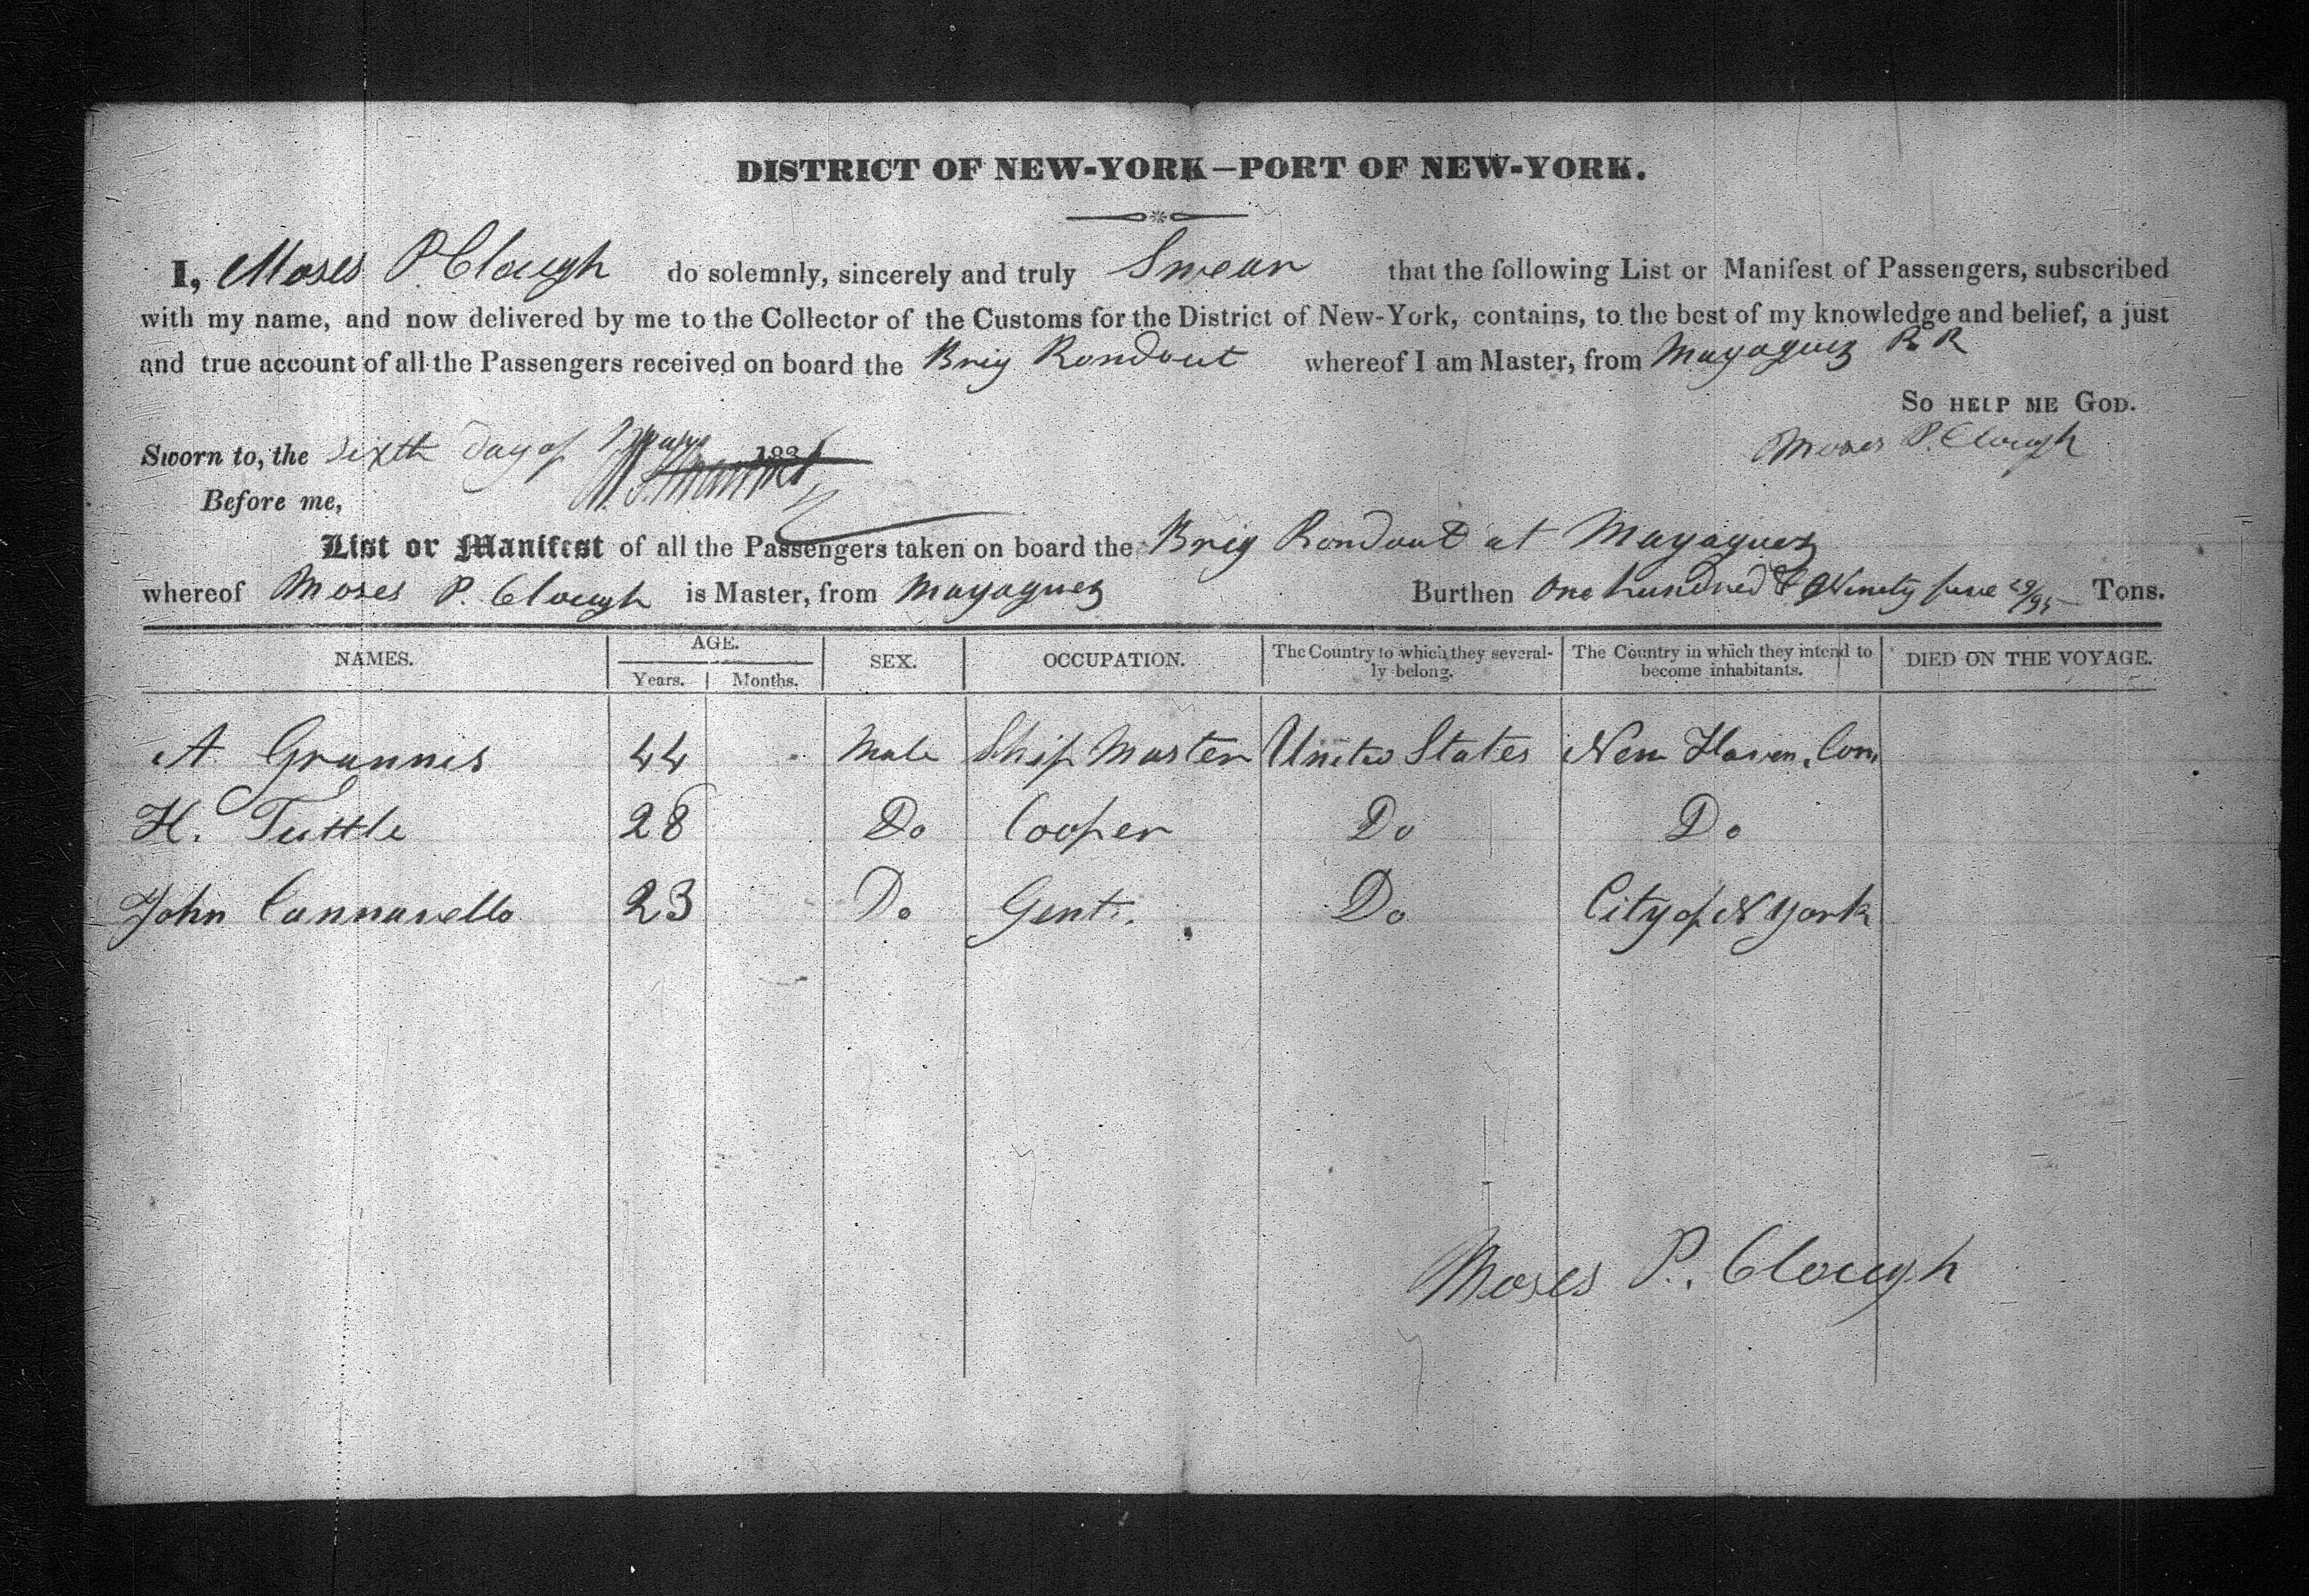 DISTRICT OF NEW-YORK—PORT OF NEW-YORK.
I, Moses P. Clough do solemnly, sincerely and truly Swear that the following List or Manifest of Passengers, subscribed
with my name, and now delivered by me to the Collector of the Customs for the District of New-York, contains, to the best of my knowledge and belief, a just
and true account of all the Passengers received on board the Brig Rondout whereof I am Master, from Mayaguez
SO HELP ME GOD.
Moses P. Clough
Sworn to, the Sixth day of 183
Before me,
List or Manifest of all the Passengers taken on board the Brig Rondout at Mayaguez
whereof Moses P. Clough is Master, from Mayaguez Burthen One hundred & Ninety five 29/95 Tons.
NAMES. AGE. SEX. OCCUPATION. The Country to which they several- The Country in which they intend to DIED ON THE VOYAGE.
Years. Months. ly belong. become inhabitants.
A Grannis 44 Male Ship Master United States New Haven, Con
H. Tuttle 28 Do Cooper Do Do
John Cannavello 23 Do Gent. Do City of N York
Moses P. Clough